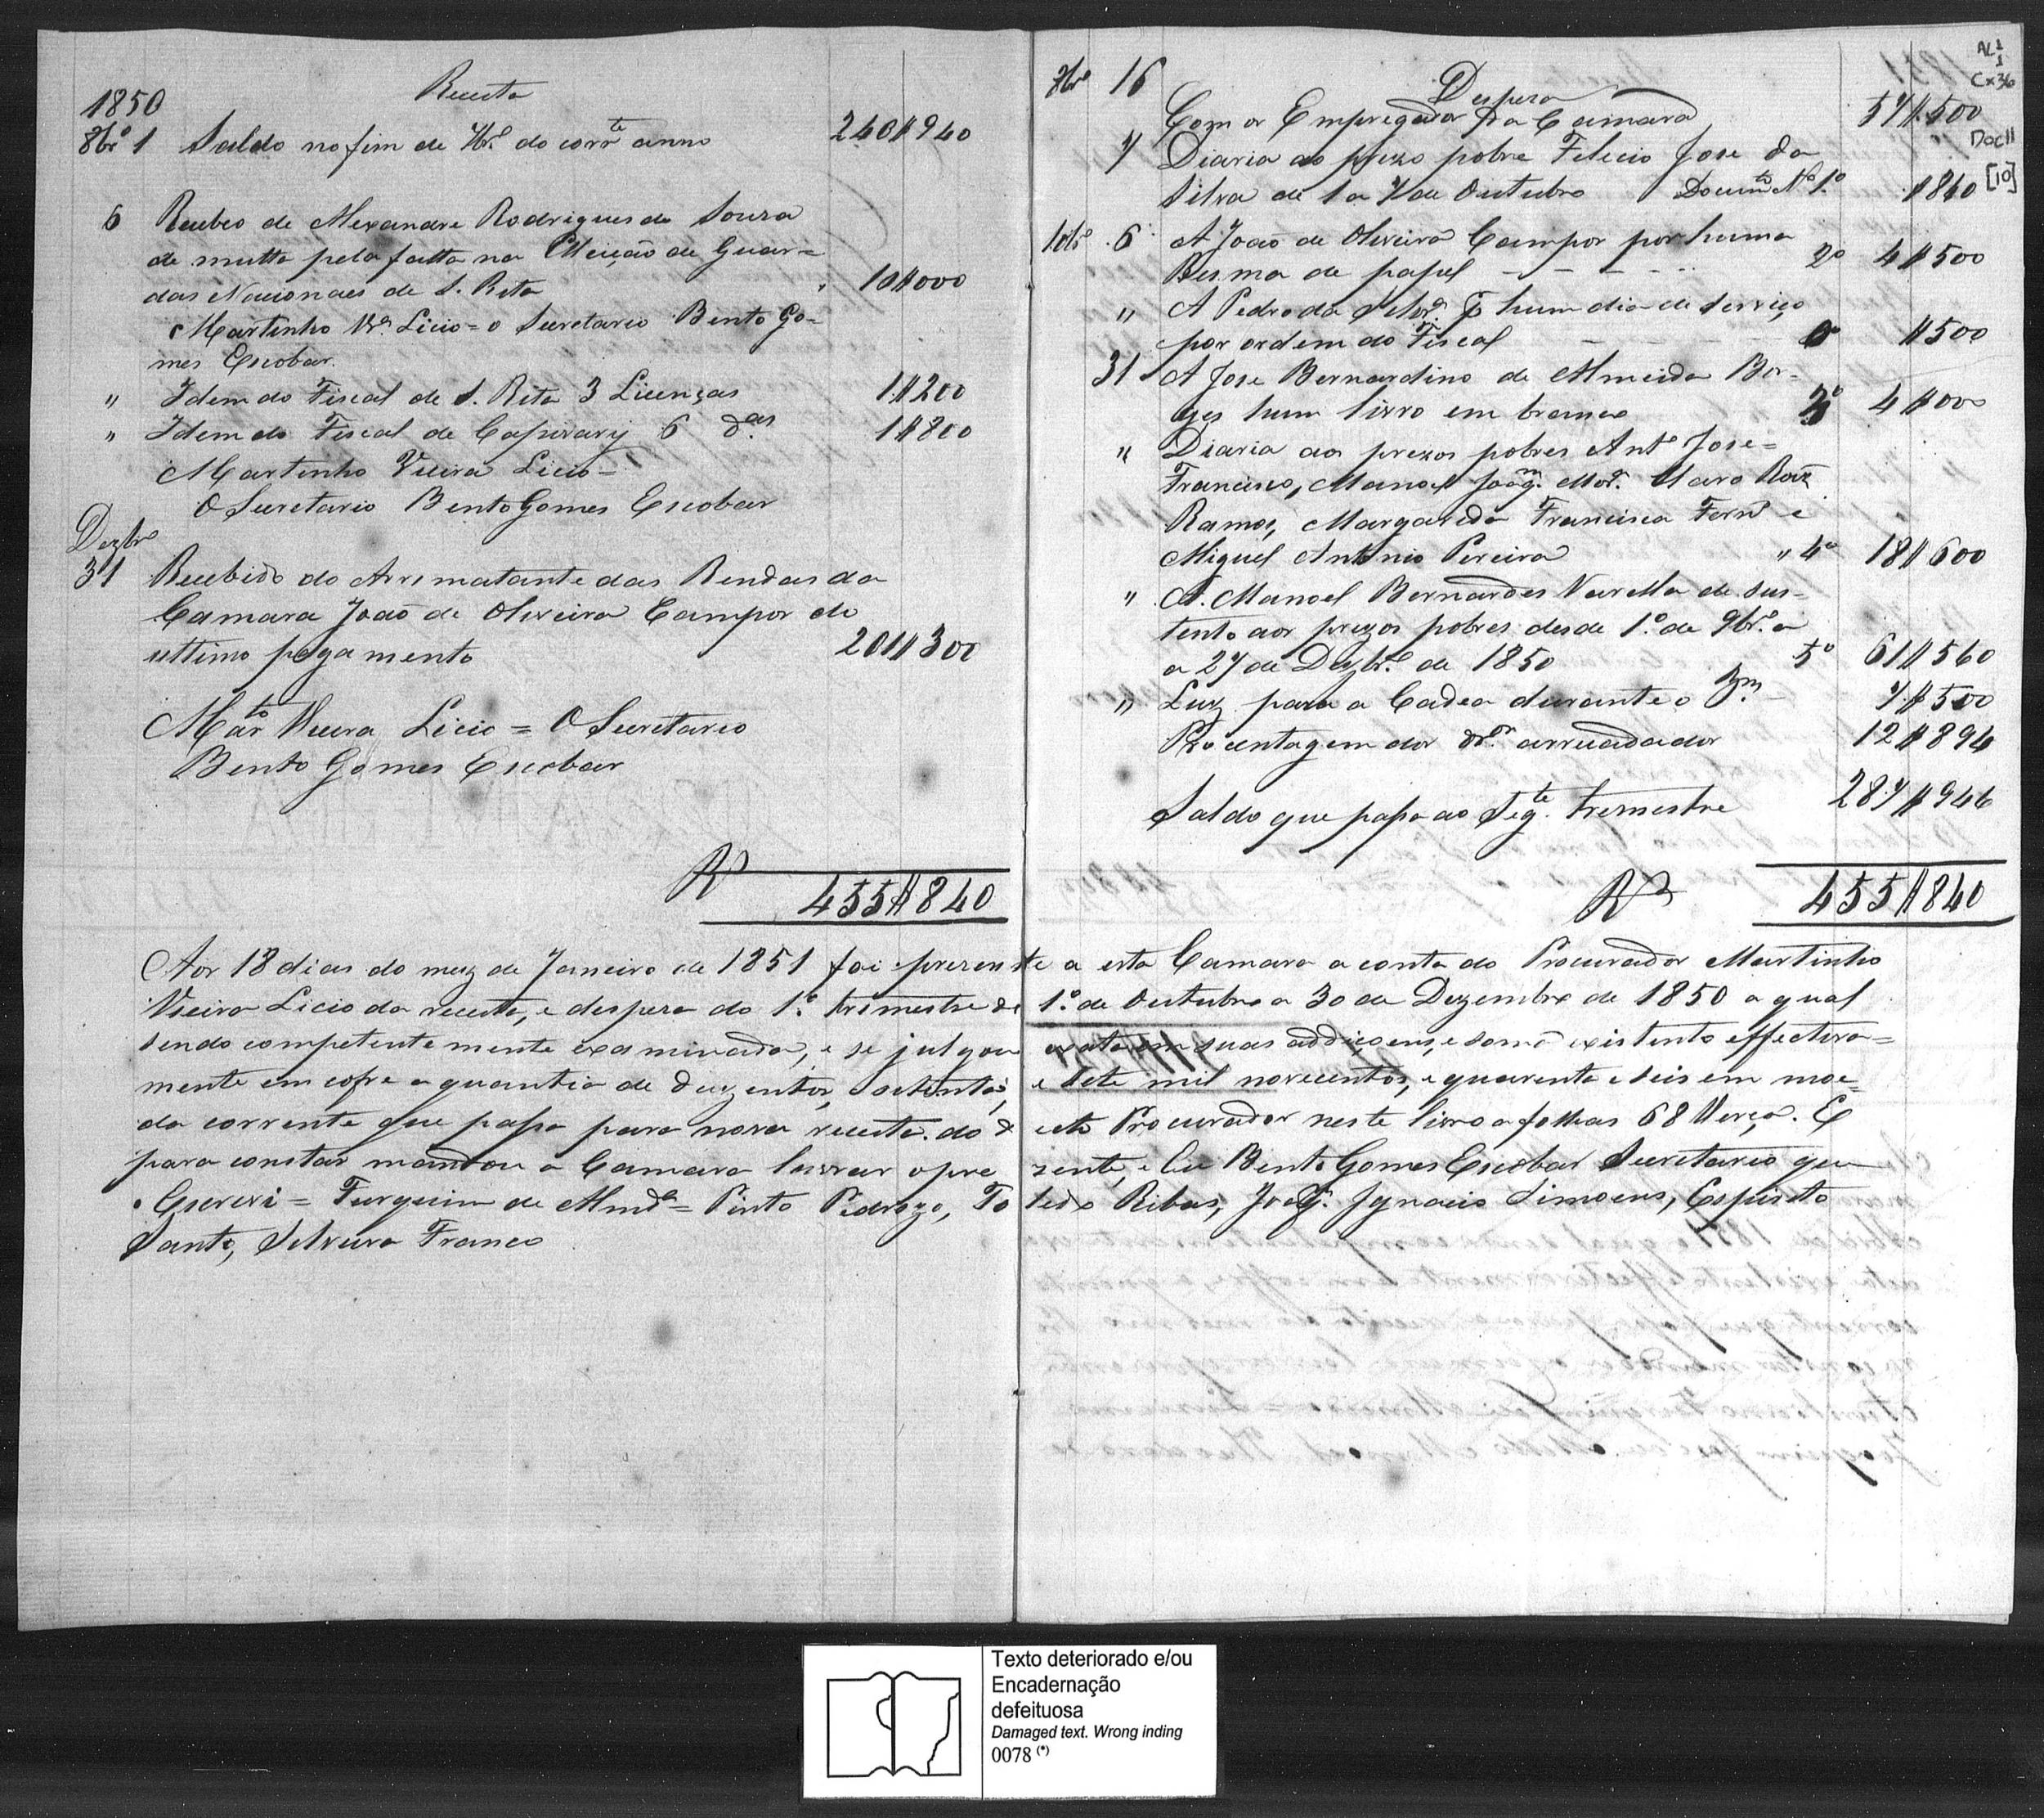 Receita
1850
8brº 1 Saldo no fim de 7brº do corrte anno 240$940
6 Recebeo de Alexandre Rodrigues de Souza
de multa pela falta na Elleição de Guar=
das Nacionaes de S. Rita 10$000
Martinho Vrª Licio = o Secretario Bento Go-
mes Escobar.
" Idem do Fiscal de S. Rita 3 Licenças 1$200
" Idem do Fiscal de Capivary 6 das 1$800
Martinho Vieira Licio =
O Secretario Bento Gomes Escobar
Dezbrº
31 Recebido do Arrematante das Rendas da
Camara João de Oliveira Campos do
ultimo pagamento 201$300
Marto Vieira Licio = O Secretario
Bento Gomes Escobar
Rs 455$840
AL 1
1
Cx 36
Doc 11
[10]
7brº 16 Despeza
Com os Empregados da Camara 57$500
7 Diaria ao prezo pobre Felicio Jose da
Silva de 1 a 7 de Outubro Documto Nº 1º $840
10brº 6 A João de Oliveira Campos por huma
Resma de papel - - - - 2º 4$500
" A Pedro da Silvª p hum dia de serviço
por ordem do Fiscal - - - - $500
31 A Jose Bernardino de Almeida Bor-
ges hum livro em branco 3º 4$000
" Diaria aos prezos pobres Antº Jose=
Francisco, Manoel Joaqm Morª Maro Roiz
Ramos, Margarida Francisca Fernd e
Miguel Antonio Pereira " 4º 18$600
" A. Manoel Bernardes Varella de sus-
tento aos prezos pobres desde 1º de 9brº a
a 27 de Dezbrº de 1850 5º 61$560
" Luz para a Cadea durante o 3m - 7$500
Procentagem dos drºs arrecadados 12$894
Saldo que passa ao Segte tremestre 287$946
Rs 455$840
Aos 18 dias do mez de Janeiro de 1851 foi prezente a esta Camara a conta do Procurador Martinho
Vieira Licio da receita, e despeza do 1º trimestre de 1º de Outubro a 30 de Dezembro de 1850 a qual
sendo competentemente examinada, e se julgou exata em suas addiçoens, e somã existento effectiva=
mente em cofre a quantia de duzentos, oitenta, e sete mil novecentos, e quarenta e seis em moe=
da corrente que passa para nova receita do deste Procurador neste livro a folhas 68 Verço. E
para constar mandou a Camara lavrar o prezente, e Eu Bento Gomes Escobar Secretario que
Escrevi = Furquim de Almdª = Pinto Pedrozo, Toledo Ribas, Joaqm Ignacio Simoens, Espirito
Santo, Silveira Franco
Texto deteriorado e/ou
Encadernação
defeituosa
Damaged text. Wrong inding
0078 (*)